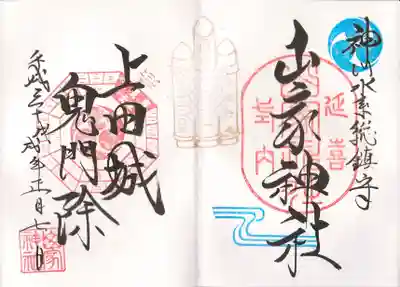 神川水系龍鎮守
延喜
山家神社
式内
上田城
鬼門除
平成三十戊戌年正月七日
山家神社